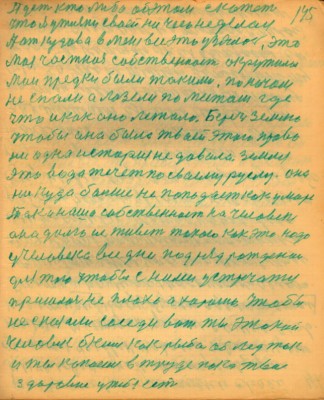 145
И дет кто либо об том скажет
что мужики свай ни чего не делам
Мат кудова в мене все это убилос, это
моя частная собственност окружила
маи предки были такими, по ночам
не спали а лазели по местам где
что и как оно лежало. Берги землю
чтобы она была твай этого право
ни одна история не давала. Земля
это вода течет по своему руслу. она
ни куда болше не попадает как у море
Так и наша собственност на человек
она долго и живет такого как это надо
у человека все дни подряд рождении
для того чтобы с ними устречатя
пришлос не плохо а хорошо. Чтобы
не сказали соседи вот ты этакой
человек бюш как рыба об лед так
и ты копаеш в труде пока твое
здоровие у тебе ест